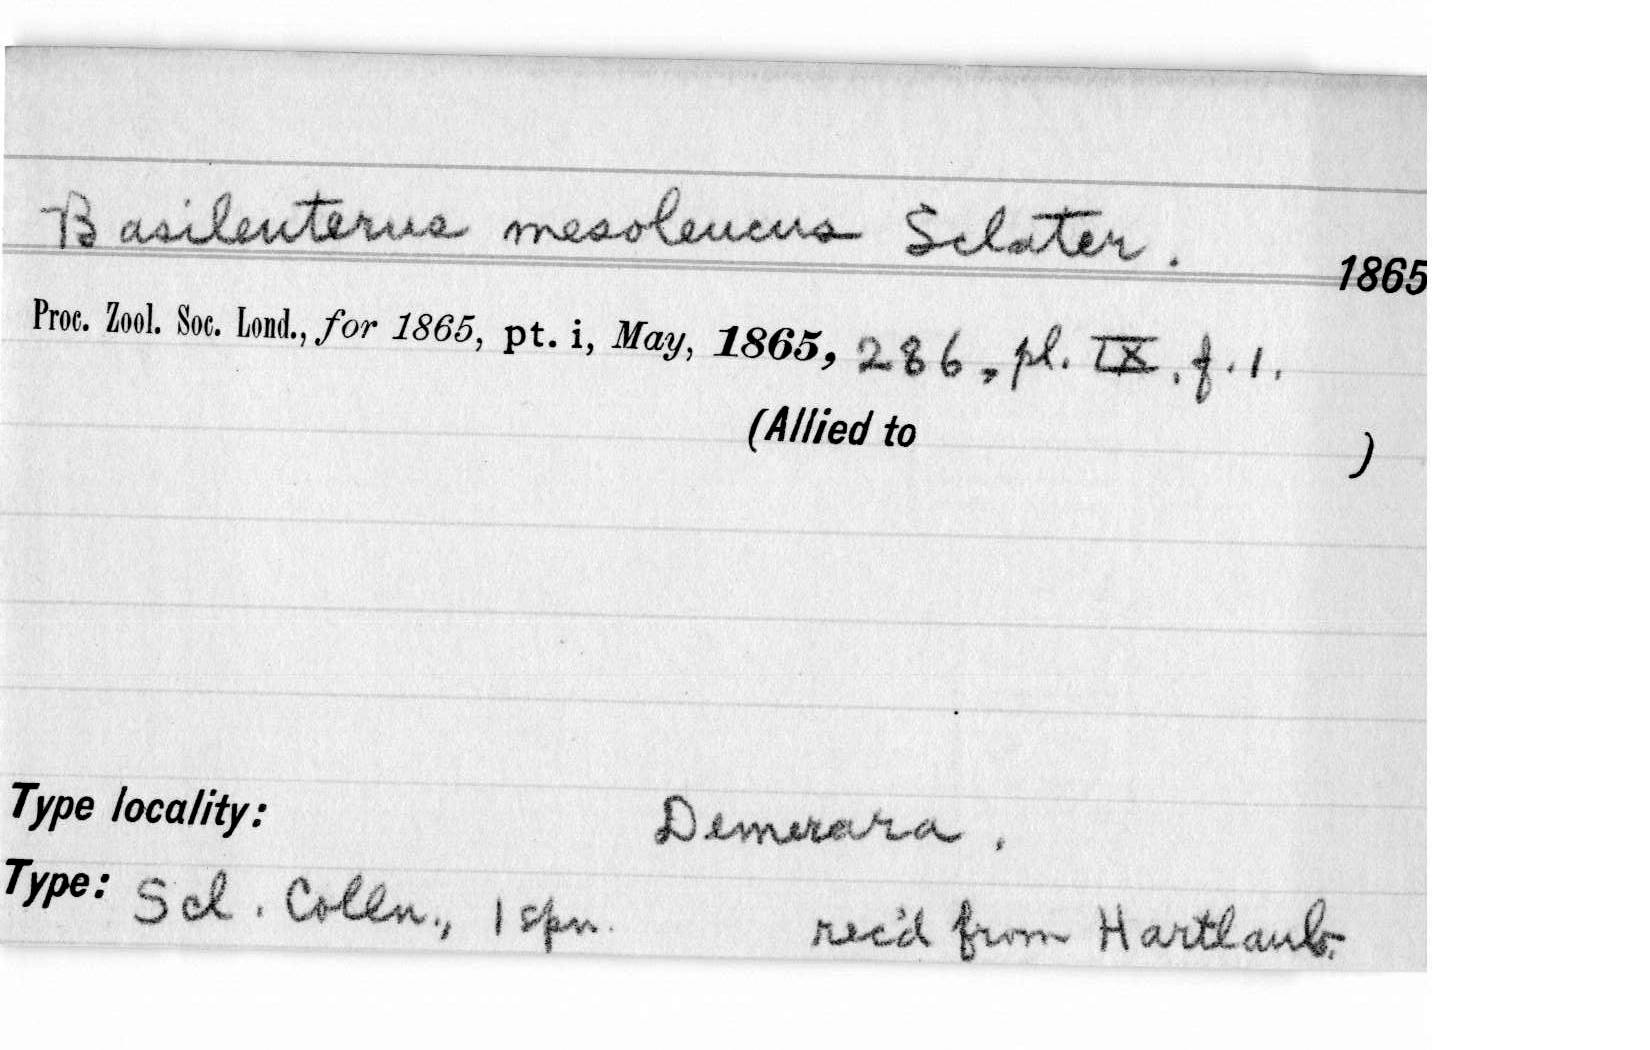 Basileuterus mesoleucus Sclater.
1865
Proc. Zool. Soc. Lond., for 1865, pt. i, May, 1865, 286, pl. IX, f. 1.
(Allied to )
Type locality: Demerara.
Type: Scl. Colln., 1 spn. rec'd from Hartlaub.